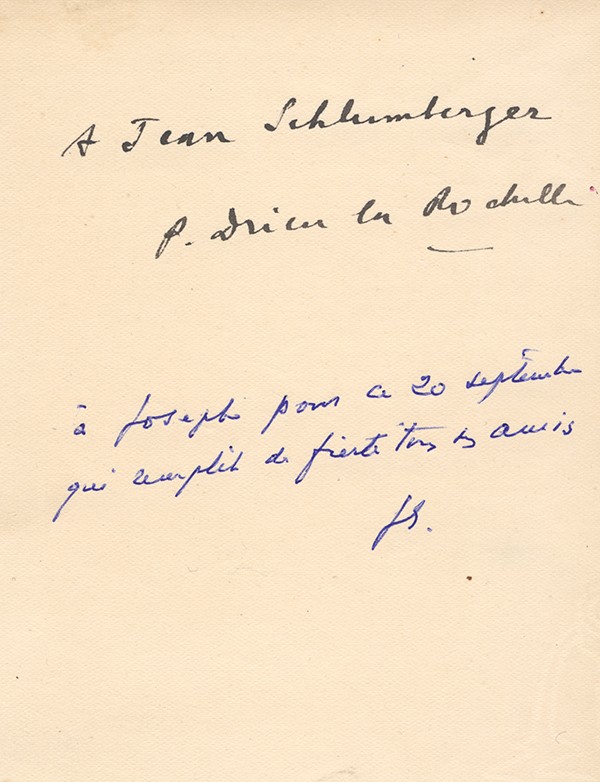 A Jean Schlumberger
P. Drieu la Rochelle
à Joseph pour ce 20 septembre
qui remplit de fierté tous ses amis
JS.